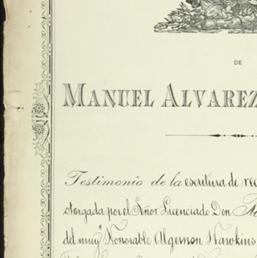 DE
MANUEL ALVAREZ
Testimonio de la escritura de rec
otorgada por el Señor Licenciado Don
del muy Honorable Algernon Hawkins